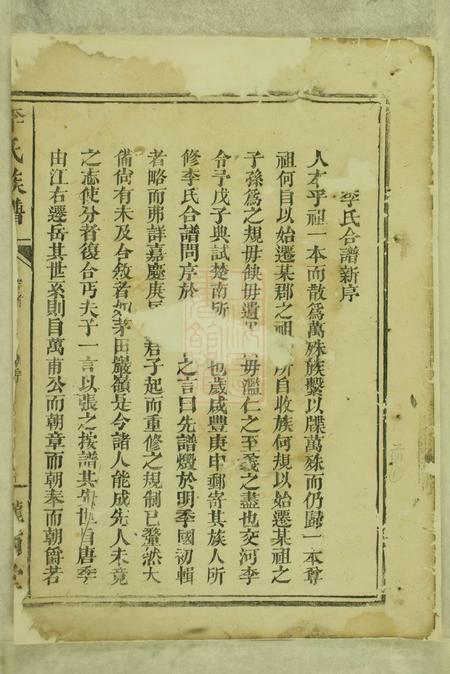 李氏合譜新序
人才乎祖一本而散爲萬殊族繫以牒萬殊而仍歸一本尊
祖何自以始遷某郡之祖 所自收族何規以始遷某祖之
子孫爲之規毋缺毋遺 毋濫仁之至義之盡也交河李
令予戊子典試楚南所 也歲咸豐庚申郵寄其族人所
修李氏合譜問序於 之言曰先譜燬於明季國初輯
者略而弗詳嘉慶庚 君子起而重修之規制已釐然大
備尚有未及合敘者如茅田巖嶺是今諸人能成先人未竟
之志使分者復合丐夫子一言以張之按譜其先世自唐季
由江右遷岳其世系則自萬甫公而朝章而朝奉而朝爵若
李氏族譜